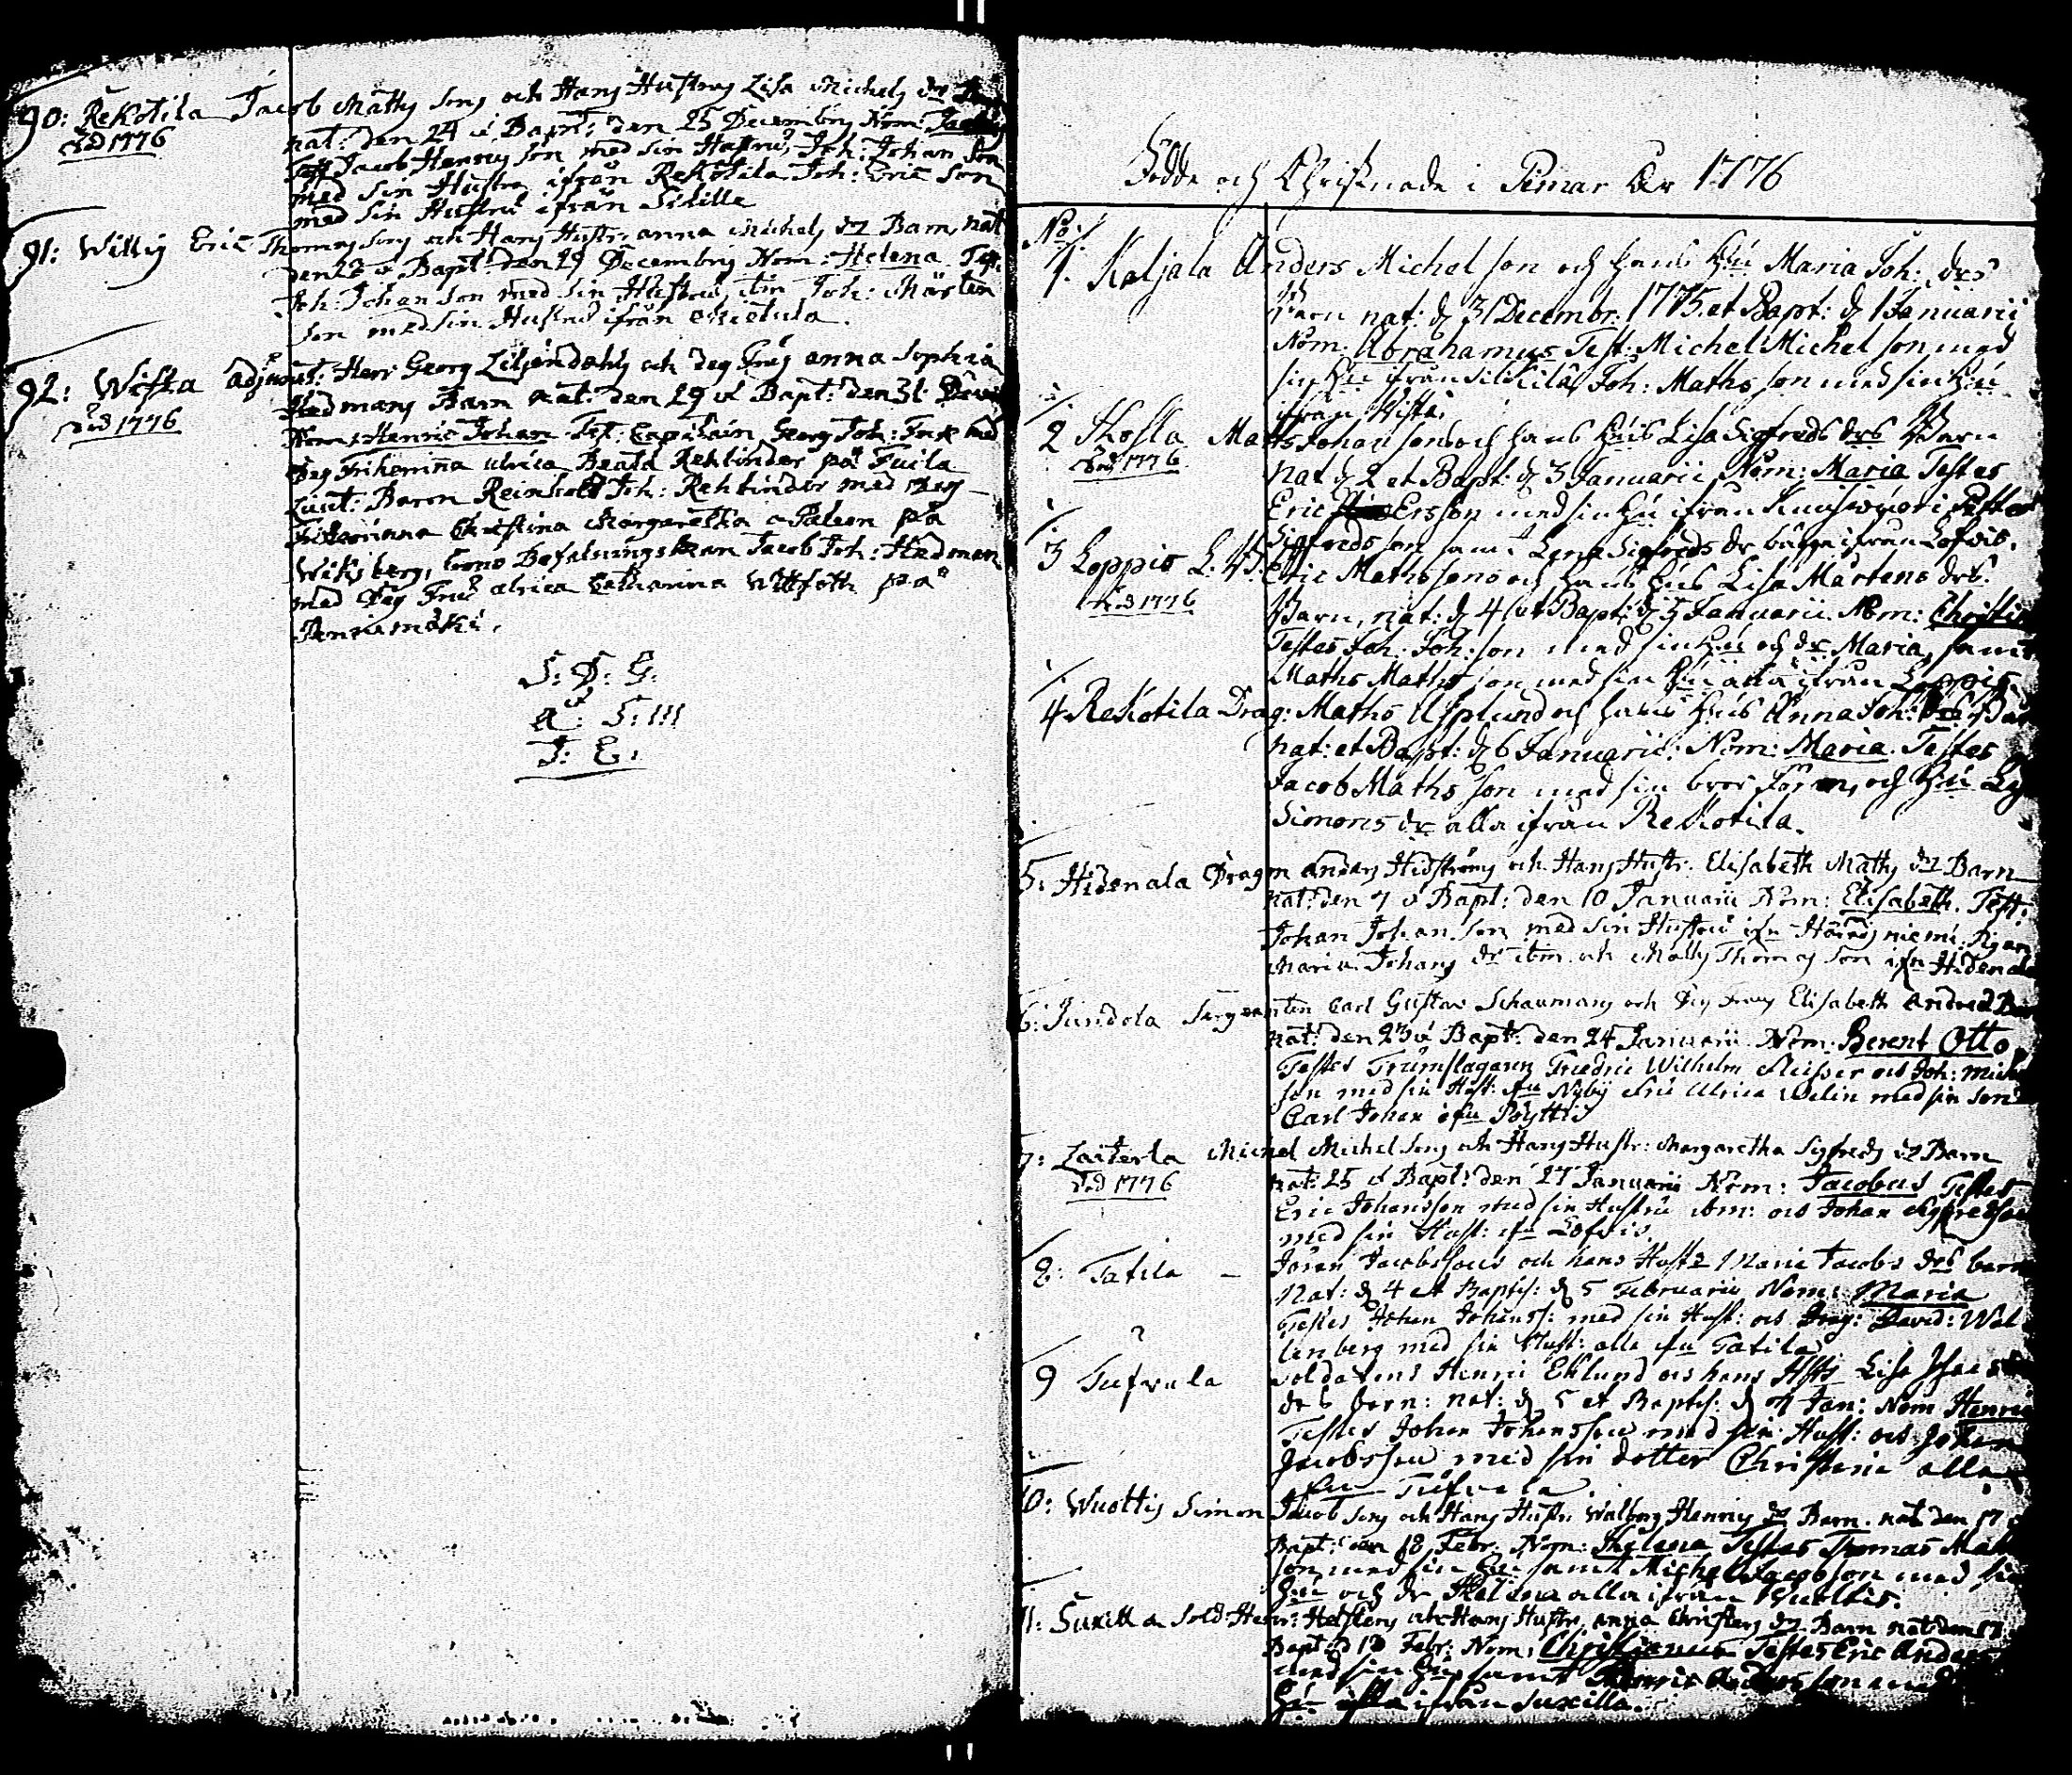 90: Rekotila Jacob Matths Sons och Hans Hustrus Lisa Michels dr
död 1776
nat: den 24 et Bapt: den 25 Decembris Nom: Jacobus
Test Jacob Henrics Son med Sin Hustru, Joh: Johan Son
med Sin Hustru ifrån Rekotila Joh: Eric Son
med Sin Hustru ifrån Sikilla
91: Willis Eric Thomas Sons och Hans Hustr: Anna Michels dr Barn, nat
den 28 et Bapt: den 29 Decembris Nom: Helena Test:
Joh: Johan Son med Sin Hustru, itm Joh: Mårten
Son med Sin Hustru ifrån
92: Wista Adjunct: Herr Georg Liljendahls och Deß Frus Anna Sophia
död 1776
Hedmans Barn nat: den 29 et Bapt: den 31 Decemb
Nom: Henric Johan Test: Capitain Georg Joh: med
Deß Friherinna Ulrica Beata Rehbinder på Tuila
Lieut: Baron Reinhold Joh: Rehbinder med Deß
Friherinna Christina Margaretha på
Wiksberg, Crono Befalningsman Jacob Joh: Hedman
med Deß Fru Ulrica Catharina Wittfoth på
S: D: G:
A: S: !!!
J: E:
Födde och Christnade i Pemar År 1776
No:
1. Kaljala Anders Michelson och hans Hu Maria Joh: drs
Barn nat: d 31 Decembr: 1775 et Bapt: d 1 Januarii
Nom: Abrahamus Test: Michel Michelson med
sin Hu ifrån Silkilä Joh: Mathsson med sin Hu
ifrån Wista.
2 Skolla Matts Johansons och hans Hus Lisa Sigfreds drs Barn
död 1776
nat d 2 et Bapt: d 3 Januarii Nom: Maria Testes
Eric Ersson med sin Hu ifrån Petter
Sigfredsson samt Lena Sigfreds dr båda ifrån Lofvis.
3 Loppis L: Eric Mathssons och hans Hus Lisa Mårtens drs
död 1776
Barn, nat: d 4 et Bapt: d 5 Januarii Nom: Christin
Testes Joh: Joh:son med sin Hu och dr Maria, samt
Maths Mathsson med sin Hu alla ifrån Loppis
4 Rekotila Drag: Maths Asplund och hans Hus Anna Joh: drs Bar
nat: et Bapt: d 6 Januarii: Nom: Maria. Testes
Jacob Mathsson med sin bror Jöran, och Hu
Simons dr alla ifrån Rekotila.
5: Hidenala Dragn Anders Hidströms och Hans Hustr: Elisabeth Matths dr Barn
nat: den 7 et Bapt: den 10 Januarii Nom: Elisabeth. Test:
Johan Johan Son med Sin Hustru ifn niemi. Pigan
Maria Johans dr itm och Matts Thomas Son ifn Hidenala
6: Jundola Sergeanten Carl Gustav Schaumans och Deß Frus Elisabeth Bar
nat: den 23 et Bapt: den 24 Januarii Nom: Berent Otto
Testes Trumslagaren Friedric Wilhelm och Joh: Michel
son med sin Hust: ifn Nyby Fru Ulrica Welin med sin Son
Carl Johan ifn Pryttis
7: Laiterla Michel Michel Sons och Hans Hustr: Margaretha Sigfreds dr Barn
död 1776
nat: 25 et Bapt: den 27 Januarii Nom: Jacobus Testes
Eric Johansson med sin Hustru ibm: och Johan Sigfredson
med sin Hust: ifn Lofvis.
8: Tatila – Jöran Jacobssons och hans Hustr Maria Jacobs drs barn
Nat: d 4 et Baptis: d 5 Februarii Nom: Maria
Testes Johan Johanss: med sin Hust: och Drag: David: Wal
lenberg med sin Hust: alla ifn Tatila
9 Tufvala Soldatens Henric Eklund och hans Hstr Lisa
drs barn: nat: d 5 et Baptis: d 7 Jan: Nom Henric
Testes Johan Johansson med sin Hust: och Johan
Jacobsson med sin dotter Christina alla
ifn Tufvala.
10: Wuottis Simon Jacob Sons och Hans Hustr: Walborg Henrics dr Barn. nat: den 17
Bapt: den 18 Febr: Nom: Helena Testes Thomas Math
son med sin Hu samt Michel Jacobson med sin
Hu och dr Helena alla ifrån Wuoltis.
11: Suxilla Sold: Henr: Helstens och Hans Hustr: Anna Christers dr Barn nat den 17
Bapt: d 18 Febr: Nom: Christianus Testes Eric Anders
med sin Hu samt Henric Andersson med
Hu alla ifrån Suxilla.